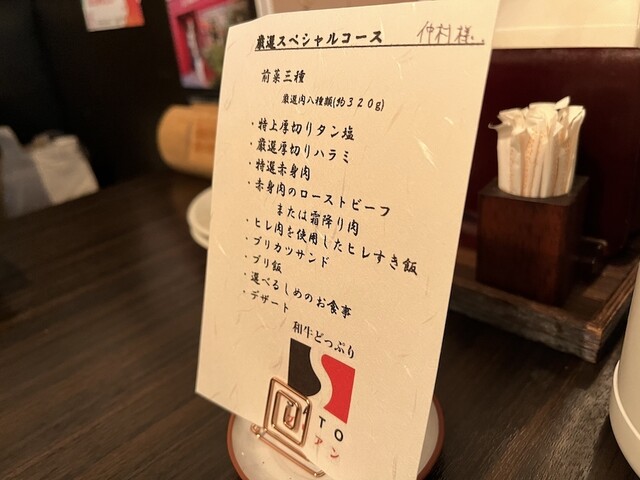 厳選スペシャルコース 仲村様
前菜三種
厳選肉八種類(約320g)
・特上厚切りタン塩
・厳選厚切りハラミ
・特選赤身肉
・赤身肉のローストビーフ
または霜降り肉
・ヒレ肉を使用したヒレすき飯
・ブリカツサンド
・ブリ飯
・選べるしめのお食事
・デザート
和牛どっぷり
TO
アン